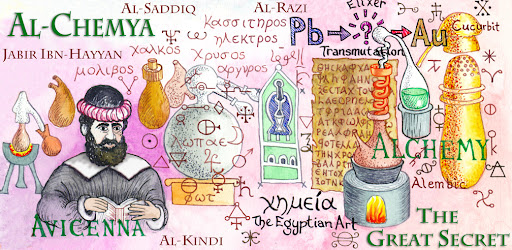 AL-CHEMYA
AL-SADDIQ
AL-RAZI
JABIR IBN-HAYYAN
κασσιτηρος
ηλεκτρος
χαλκός
χρυσος
αργυρος
μολιβος
Pb
?
Au
Elixer
Transmutation
Cucurbit
ALCHEMY
Alembic
φωτ
χημεία
The Egyptian Art
AVICENNA
AL-KINDI
THE
GREAT SECRET